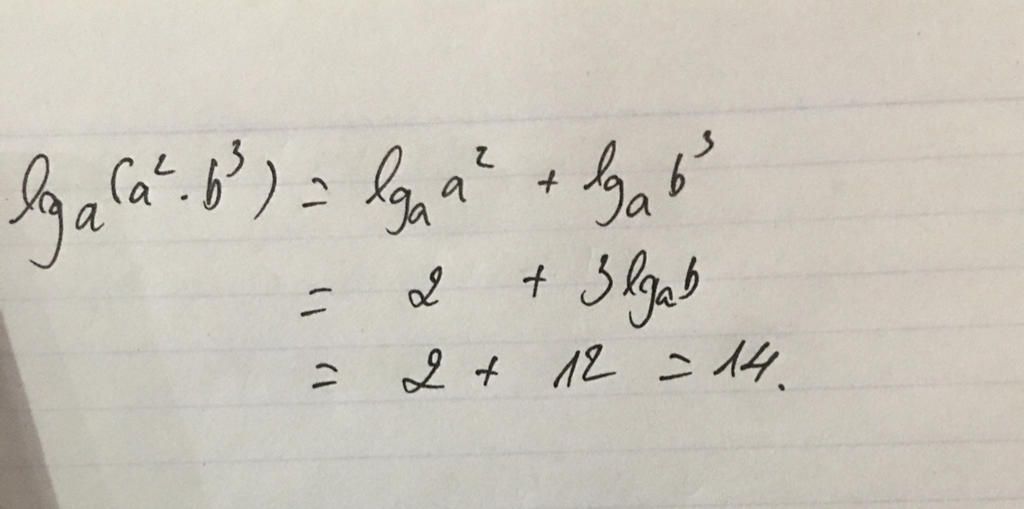 lg_a (a² · b³) = lg_a a² + lg_a b³
= 2 + 3 lg_a b
= 2 + 12 = 14.